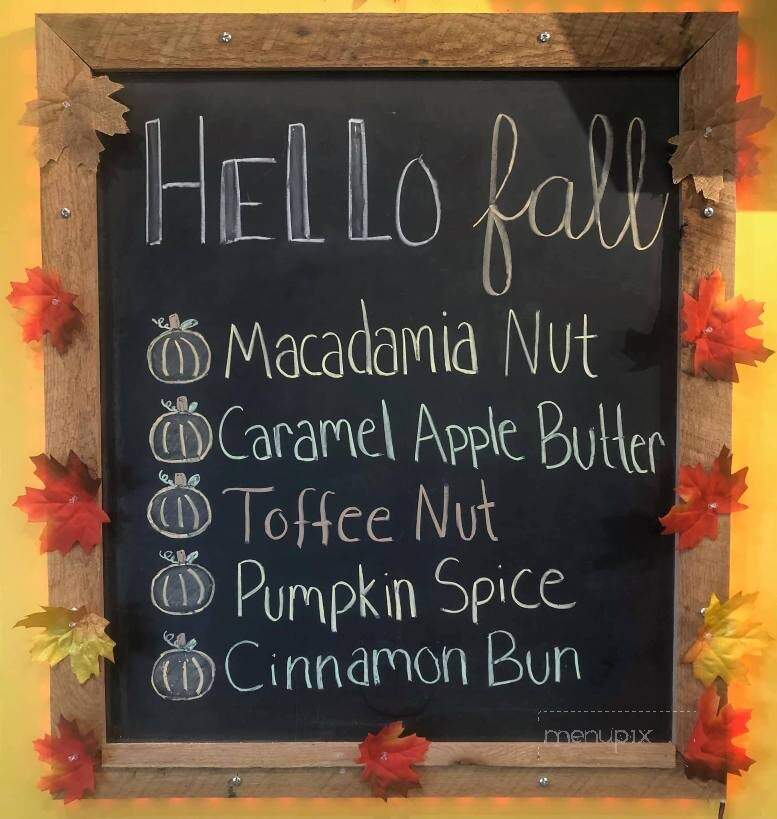 HELLO fall
Macadamia Nut
Caramel Apple Butter
Toffee Nut
Pumpkin Spice
Cinnamon Bun
menupix